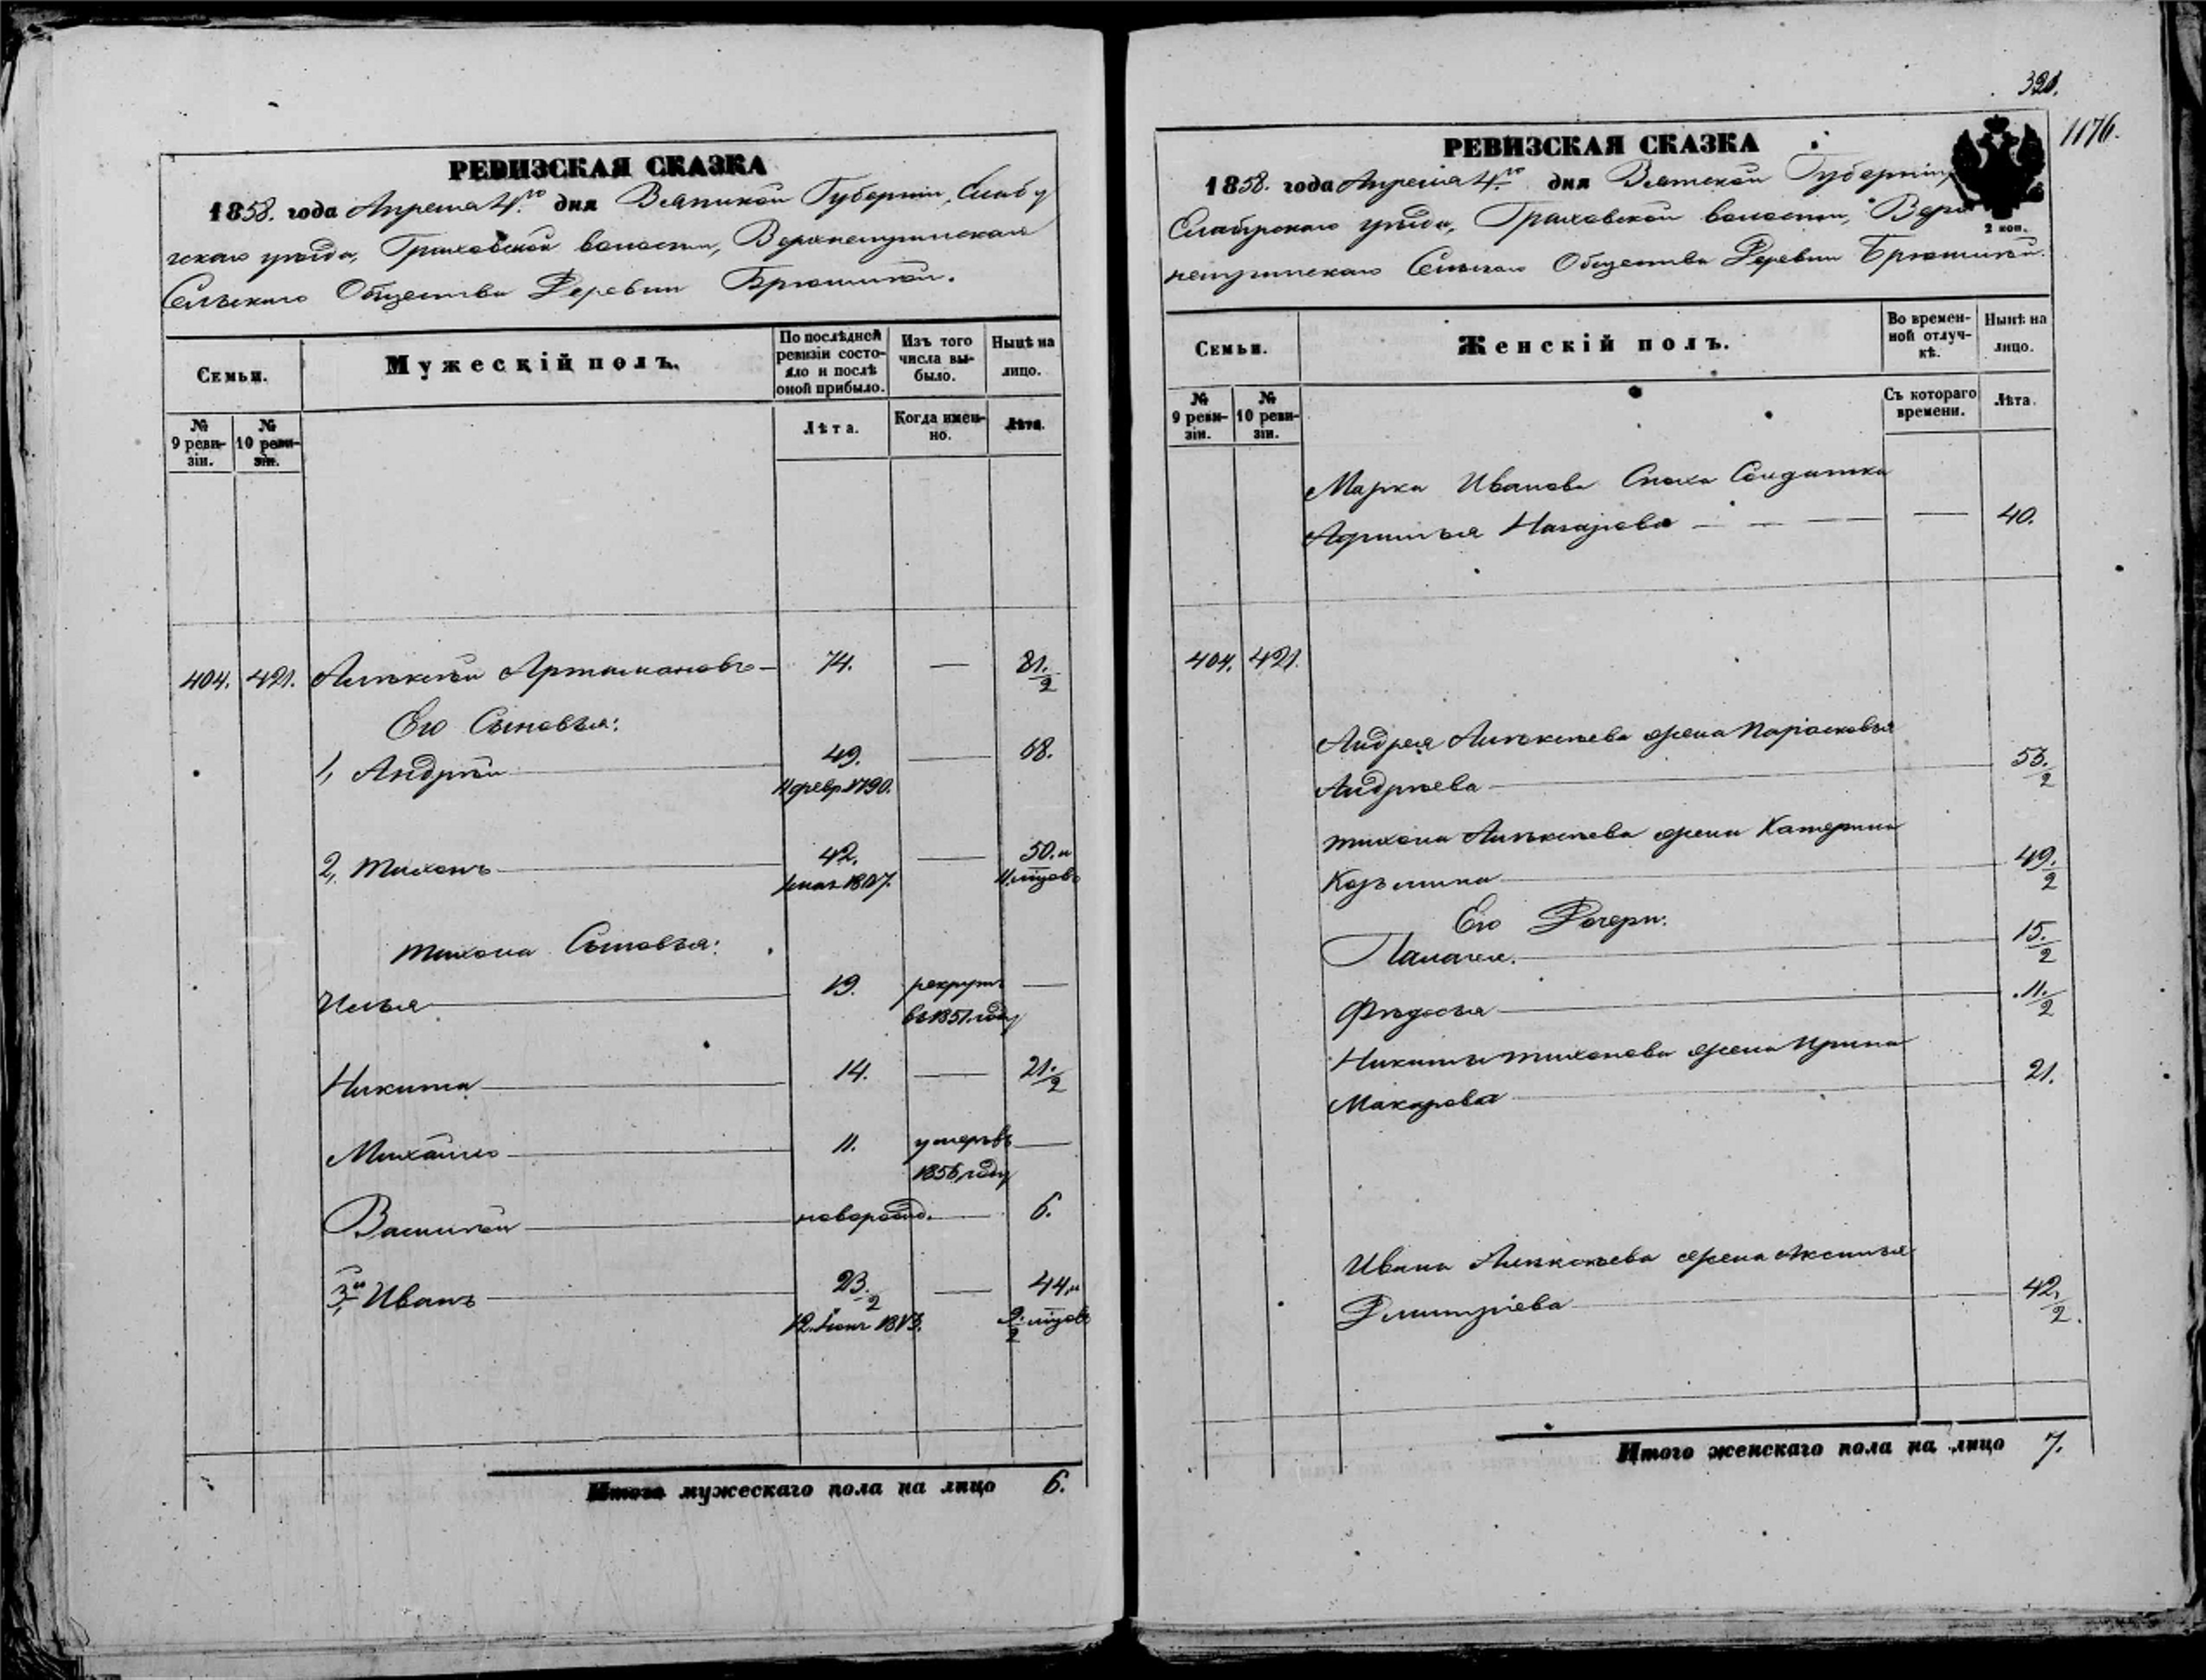 РЕВИЗСКАЯ СКАЗКА
1858. года Апреля 4.го дня Вятской Губерніи, Елабу
жскаго уѣзда, Граховской волости, Верхнешушинскаго
Сельскаго Общества Деревни Брюшкой.
Семьи.
Мужескій полъ.
По послѣдней ревизіи состояло и послѣ оной прибыло.
Изъ того числа выбыло.
Нынѣ на лицо.
№ 9 ревизіи.
№ 10 ревизіи.
Лѣта.
Когда именно.
Лѣта.
404. 421. Алексѣй Артамоновъ — 74. — 81.½
Его Сыновья:
1, Андрей 49. — 68.
11 февр. 1790.
2, Тихонъ 42. — 50. и
1807. 11. мѣсяцовъ
Тихона Сыновья:
Илья 19. рекрутъ —
въ 1851. году
Никита 14. — 21.½
Михайло 11. умеръ въ —
1856 году
Василей новорожд. — 6.
3й Иванъ 23.½ — 44. и
12. 1813. 9.½ мѣсяцовъ
Итого мужескаго пола на лицо 6.
1176.
РЕВИЗСКАЯ СКАЗКА
1858. года Апреля 4.го дня Вятской Губерніи
Елабужскаго уѣзда, Граховской волости, Верх
нешушинскаго Сельскаго Общества Деревни Брюшкой.
2 коп.
Семьи.
Женскій полъ.
Во временной отлучкѣ.
Нынѣ на лицо.
№ 9 ревизіи.
№ 10 ревизіи.
Съ котораго времени.
Лѣта.
Марка Иванова Сноха Солдатка
Назарова — — — — 40.
404. 421.
Андрея Алексѣева жена Парасковья
Андреева 53.½
Тихона Алексѣева жена Катерина
Козьмина 49.½
Его Дочери:
Палагея. 15.½
Федосья 11.½
Никиты Тихонова жена Ирина
Макарова 21.
Ивана Алексѣева жена Аксинья
Дмитріева 42.½
Итого женскаго пола на лицо 7.